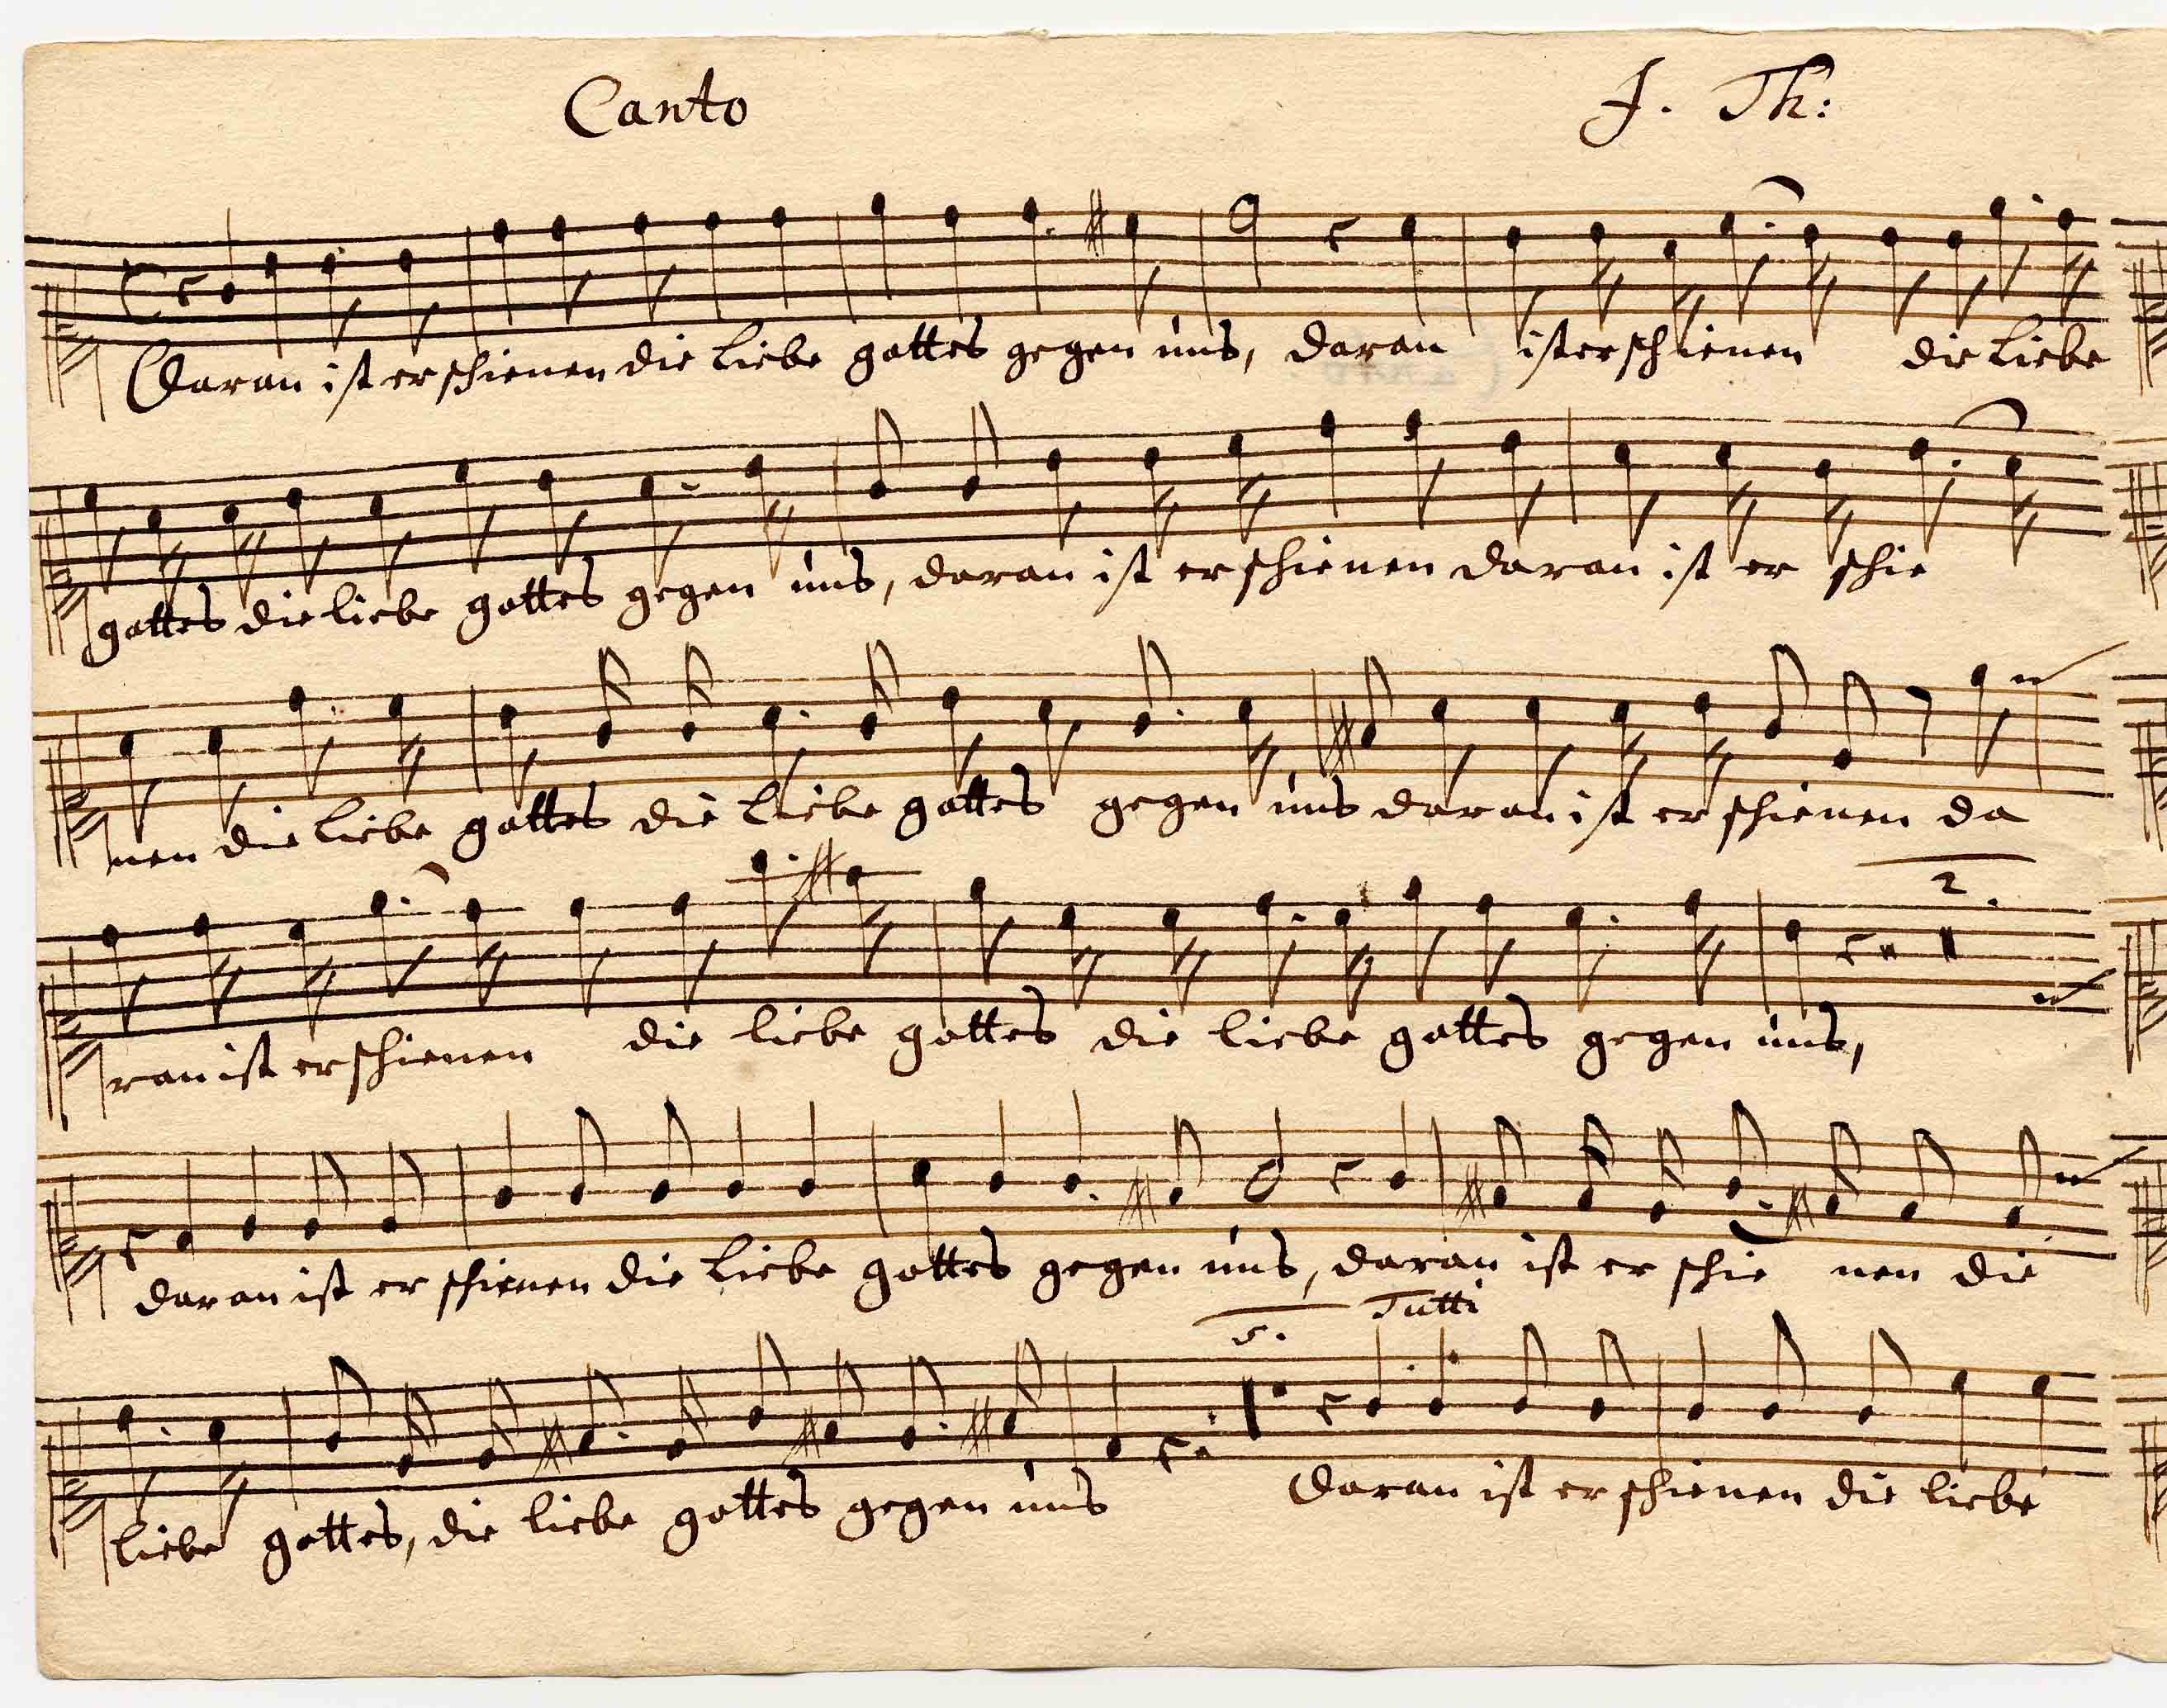 Canto J. Th:
Daran ist erschienen die Liebe gottes gegen uns, daran ist erschienen die Liebe
gottes die liebe gottes gegen uns, daran ist erschienen daran ist er schie
nen die liebe gottes die Liebe gottes gegen uns daran ist erschienen da
2.
ran ist erschienen die liebe gottes die liebe gottes gegen uns,
daran ist er schienen die Liebe gottes gegen uns, daran ist er schie nen die
5. Tutti
liebe gottes, die liebe gottes gegen uns Daran ist erschienen die liebe